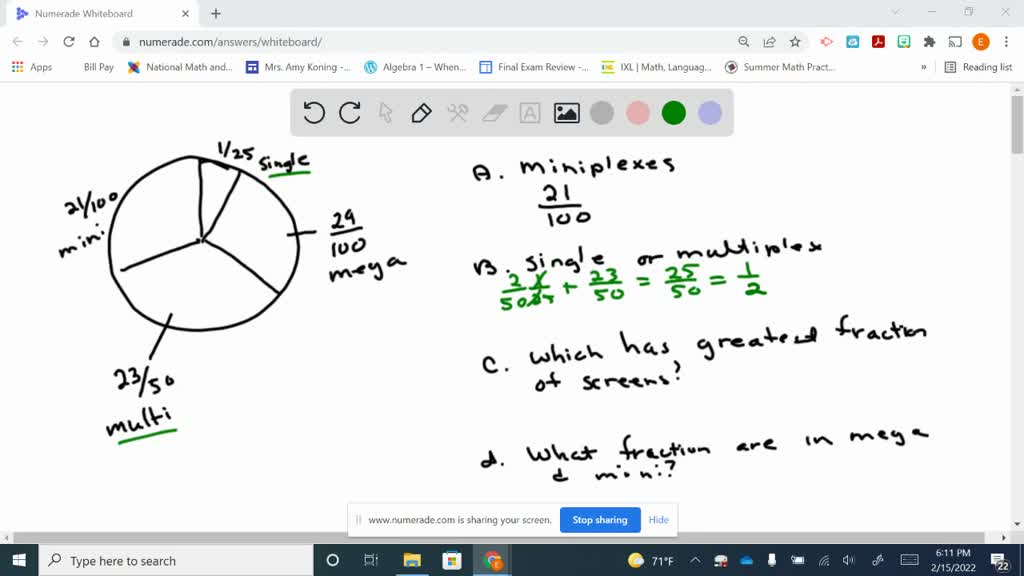 Numerade Whiteboard
numerade.com/answers/whiteboard/
E
Apps Bill Pay National Math and... Mrs. Amy Koning -... Algebra 1 – When... Final Exam Review -... IXL | Math, Languag... Summer Math Pract... » Reading list
A
1/25 single
21/100
mini
29
100
mega
23/50
multi
A. miniplexes
21
100
B. single or multiplex
2/50 1/25 + 23/50 = 25/50 = 1/2
C. which has greatest fraction
of screens?
d. What fraction are in mega
& mini?
www.numerade.com is sharing your screen. Stop sharing Hide
Type here to search
71°F
6:11 PM
2/15/2022
22